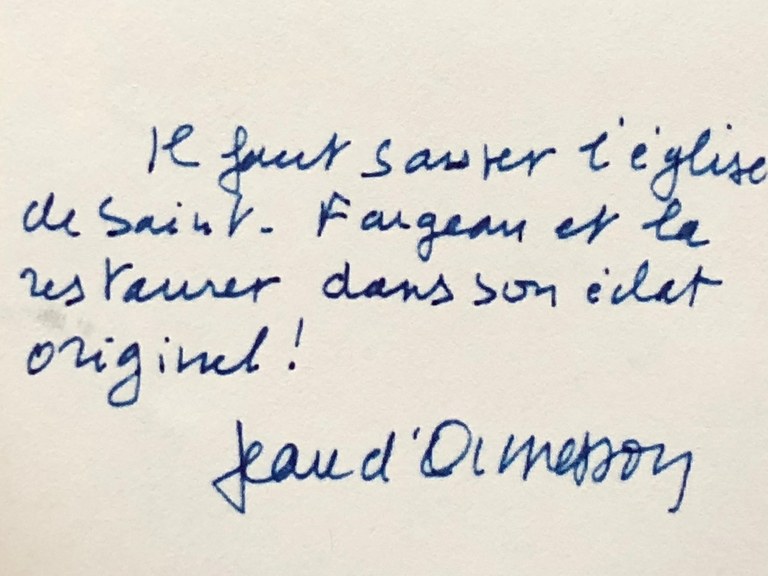 Il faut sauver l'église
de Saint-Fargeau et la
restaurer dans son éclat
originel !
Jean d'Ormesson